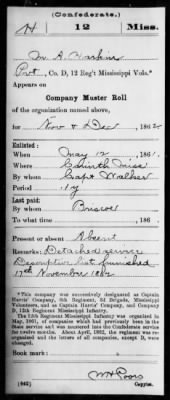 (Confederate.)
H 12 Miss.
M. A. Harkins
Pvt, Co. D, 12 Reg't Mississippi Vols.*
Appears on
Company Muster Roll
of the organization named above,
for Nov & Dec, 1862
Enlisted:
When May 12, 1861.
Where Corinth Miss
By whom Capt Walker
Period 1 y
Last paid:
By whom Briscoe
To what time , 186 .
Present or absent Absent
Remarks: Detached service
Descriptive list furnished
17th November 1862
*This company was successively designated as Captain
Harris' Company, 6th Regiment, 2d Brigade, Mississippi
Volunteers, and as Captain Harris' Company, and Company
D, 12th Regiment Mississippi Infantry.
The 12th Regiment Mississippi Infantry was organized in
May, 1861, of companies which had previously been in the
State service and was mustered into the Confederate service
for twelve months. About April, 1862, the regiment was re-
organized and the letters of all companies, except D, were
changed.
Book mark:
(642)
Copyist.